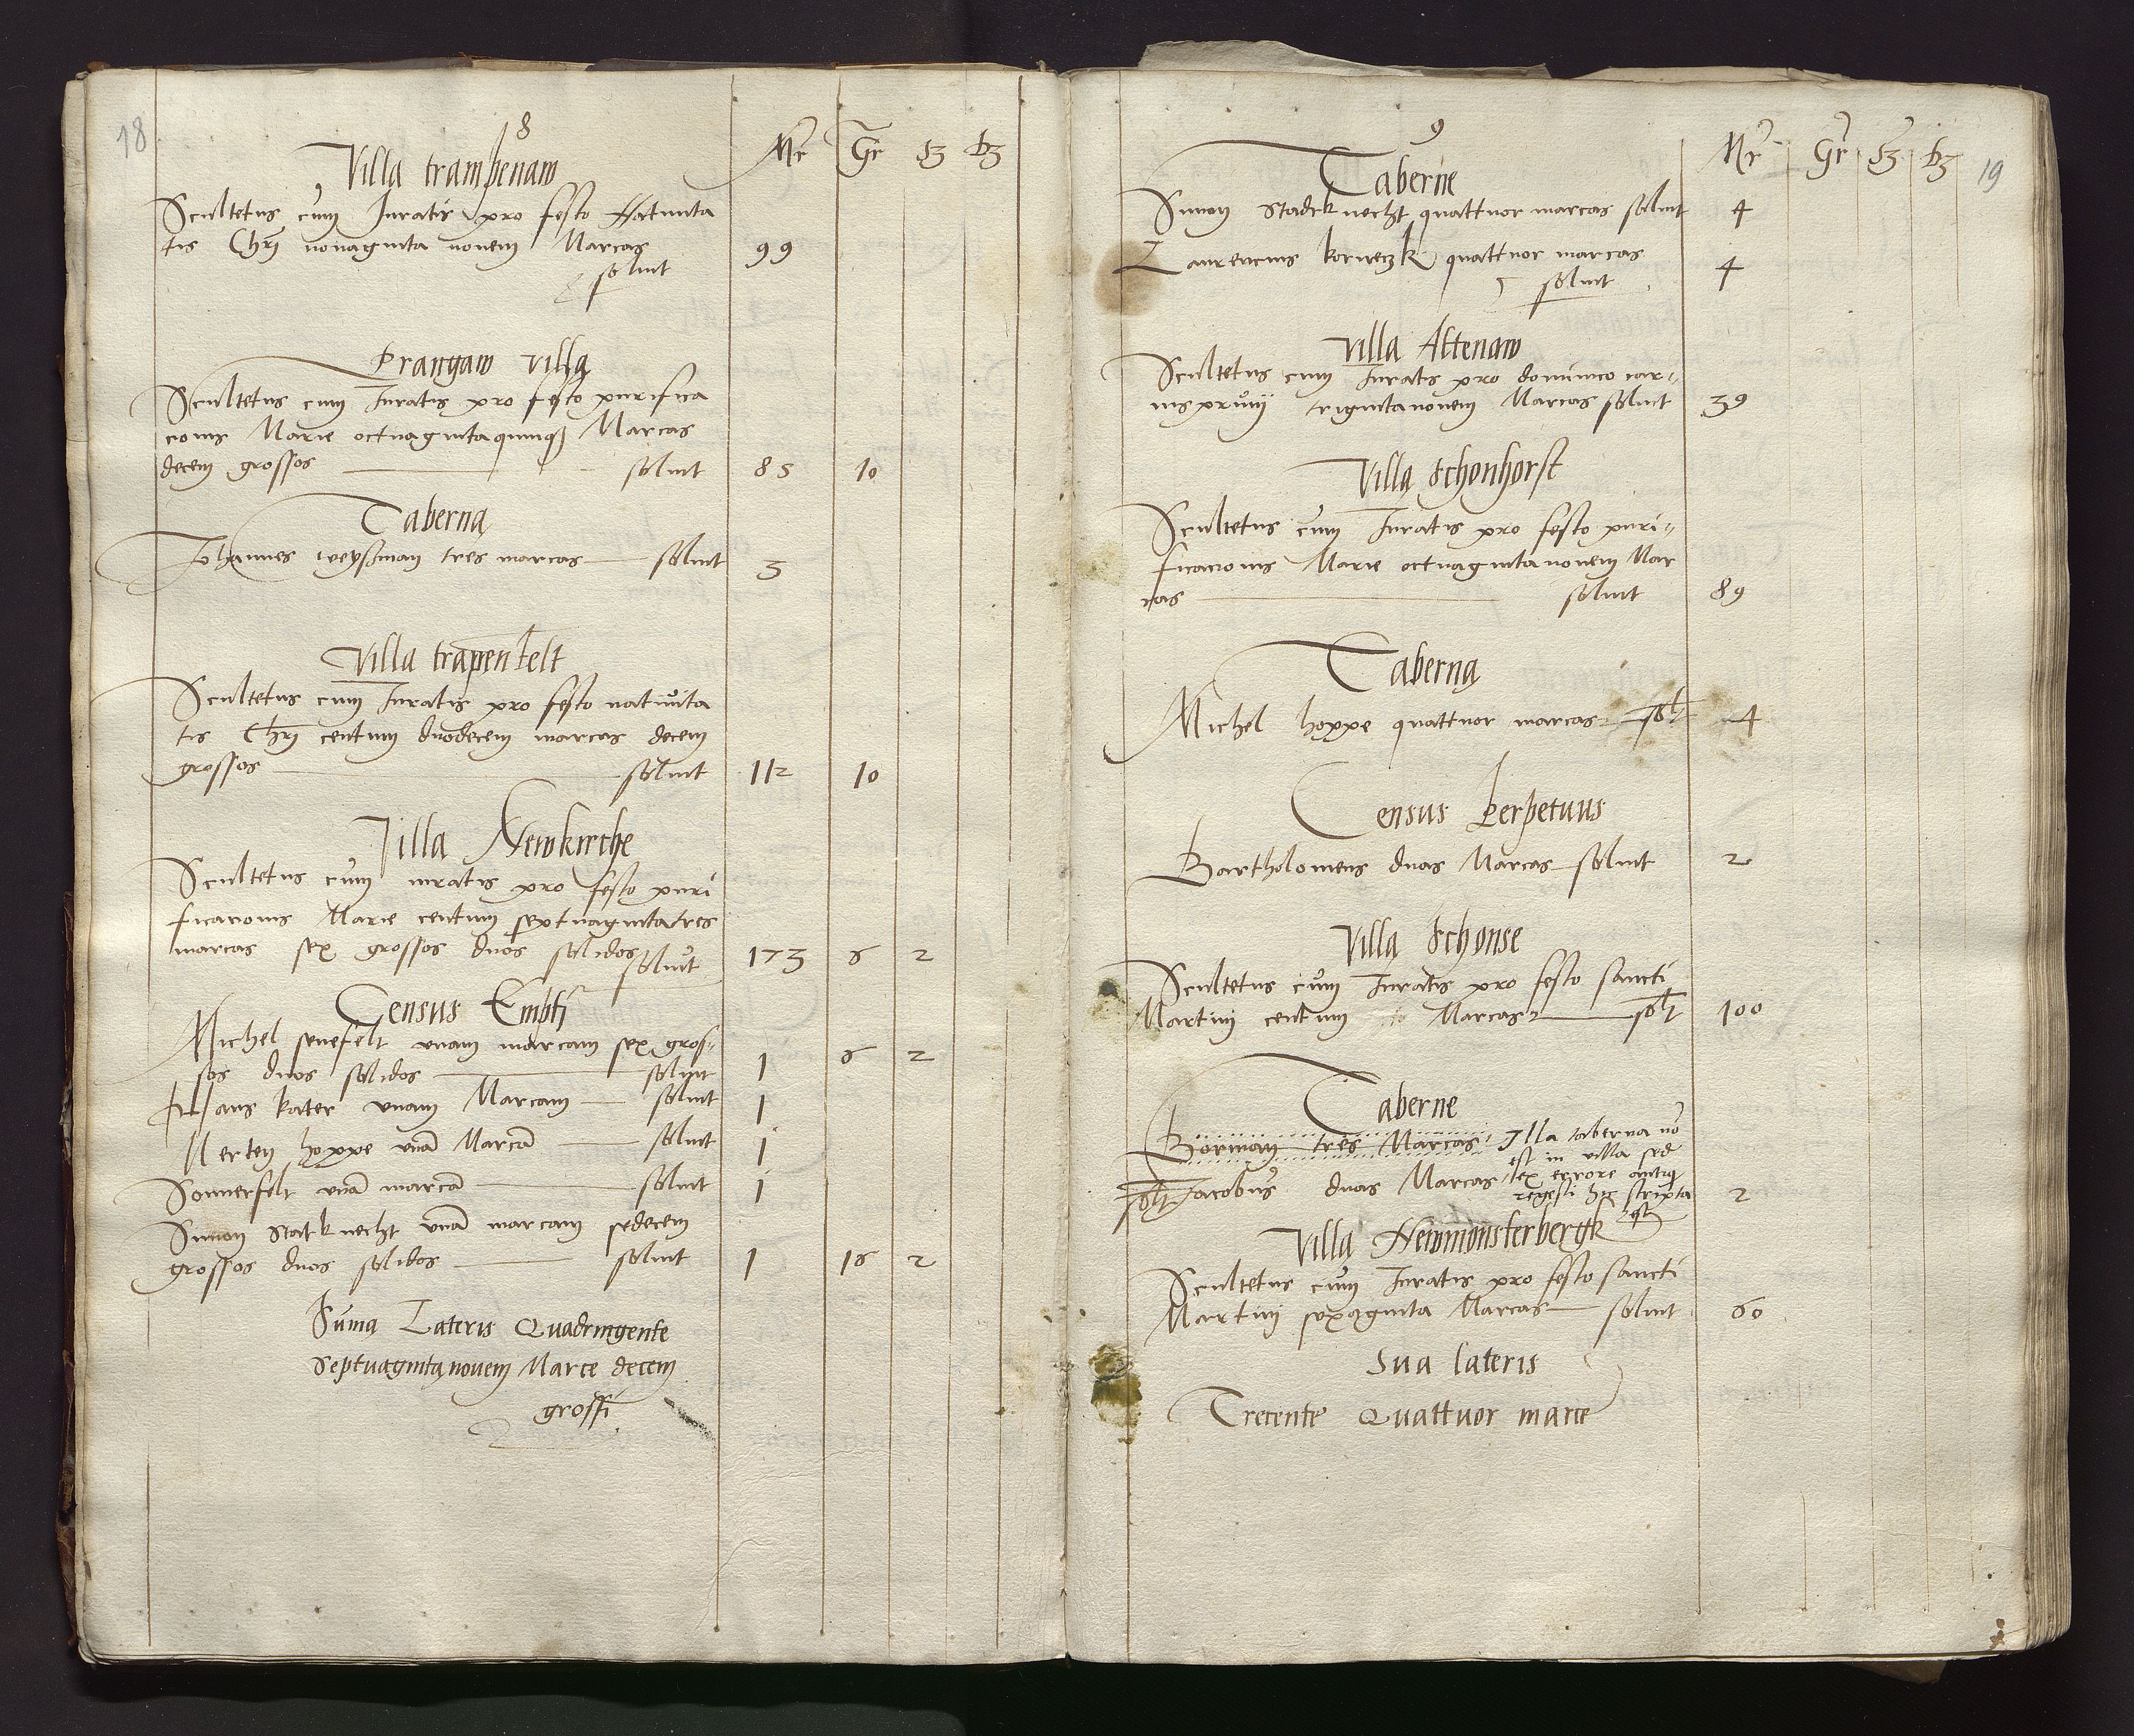 18
8
Mr Gr ß ₰
Villa trampenaw
Scultetus cum Juratis pro festo Natiuita
tis Chri nonaginta nouem Marcas
soluit 99
Prangaw villa
Scultetus cum Juratis pro festo purifica
conis Marie octuagintaquinqȝ Marcas
decem grossos soluit 85 10
Taberna
Johannes weyssman tres marcas soluit 3
Villa trapenfelt
Scultetus cum Juratis pro festo natiuita
tis Chri centum duodecem marcas decem
grossos soluit 112 10
Villa Newkirche
Scultetus cum iuratis pro festo puri
ficacionis Marie centum septuagintatres
marcas sex grossos duos solidos soluit 173 6 2
Census Emphi
Michel senefelt vnam marcam sex gros-
sos duos solidos soluit 1 6 2
Hans kater vnam Marcam soluit 1
Merten hoppe vnā Marcā soluit 1
Sonnerfelt vnā marcā soluit 1
Simon Statknecht vnā marcam sedecem
grossos duos solidos soluit 1 16 2
Suma Lateris Quadringente
Septuaginta nouem Marce decem
grossi
19
9
Mr Gr ß ₰
Taberne
Simon Stadtknecht quattuor marcas soluit 4
Laurencius korneczk quattuor marcas
soluit 4
Villa Altenaw
Scultetus cum Juratis pro dominico car-
nispriuij trigintanouem Marcas soluit 39
Villa Schonhorst
Scultetus cum Juratis pro festo puri-
ficacionis Marie octuagintanouem Mar
cas soluit 89
Taberna
Michel hoppe quattuor marcas solt 4
Census Perpetuus
Bartholomeus duas Marcas soluit 2
Villa Schonse
Scultetus cum Juratis pro festo sancti
Martini centum Marcas solt 100
Taberne
Borman tres Marcas Illa taberna nō
est in villa sed
solt Jacobus duas Marcas ex errore antiq
regesti hic scripta 2
est
Villa Newmonsterbergk
Scultetus cum Juratis pro festo sancti
Martini sexaginta Marcas soluit 60
Sua lateris
Trecente Quattuor marce